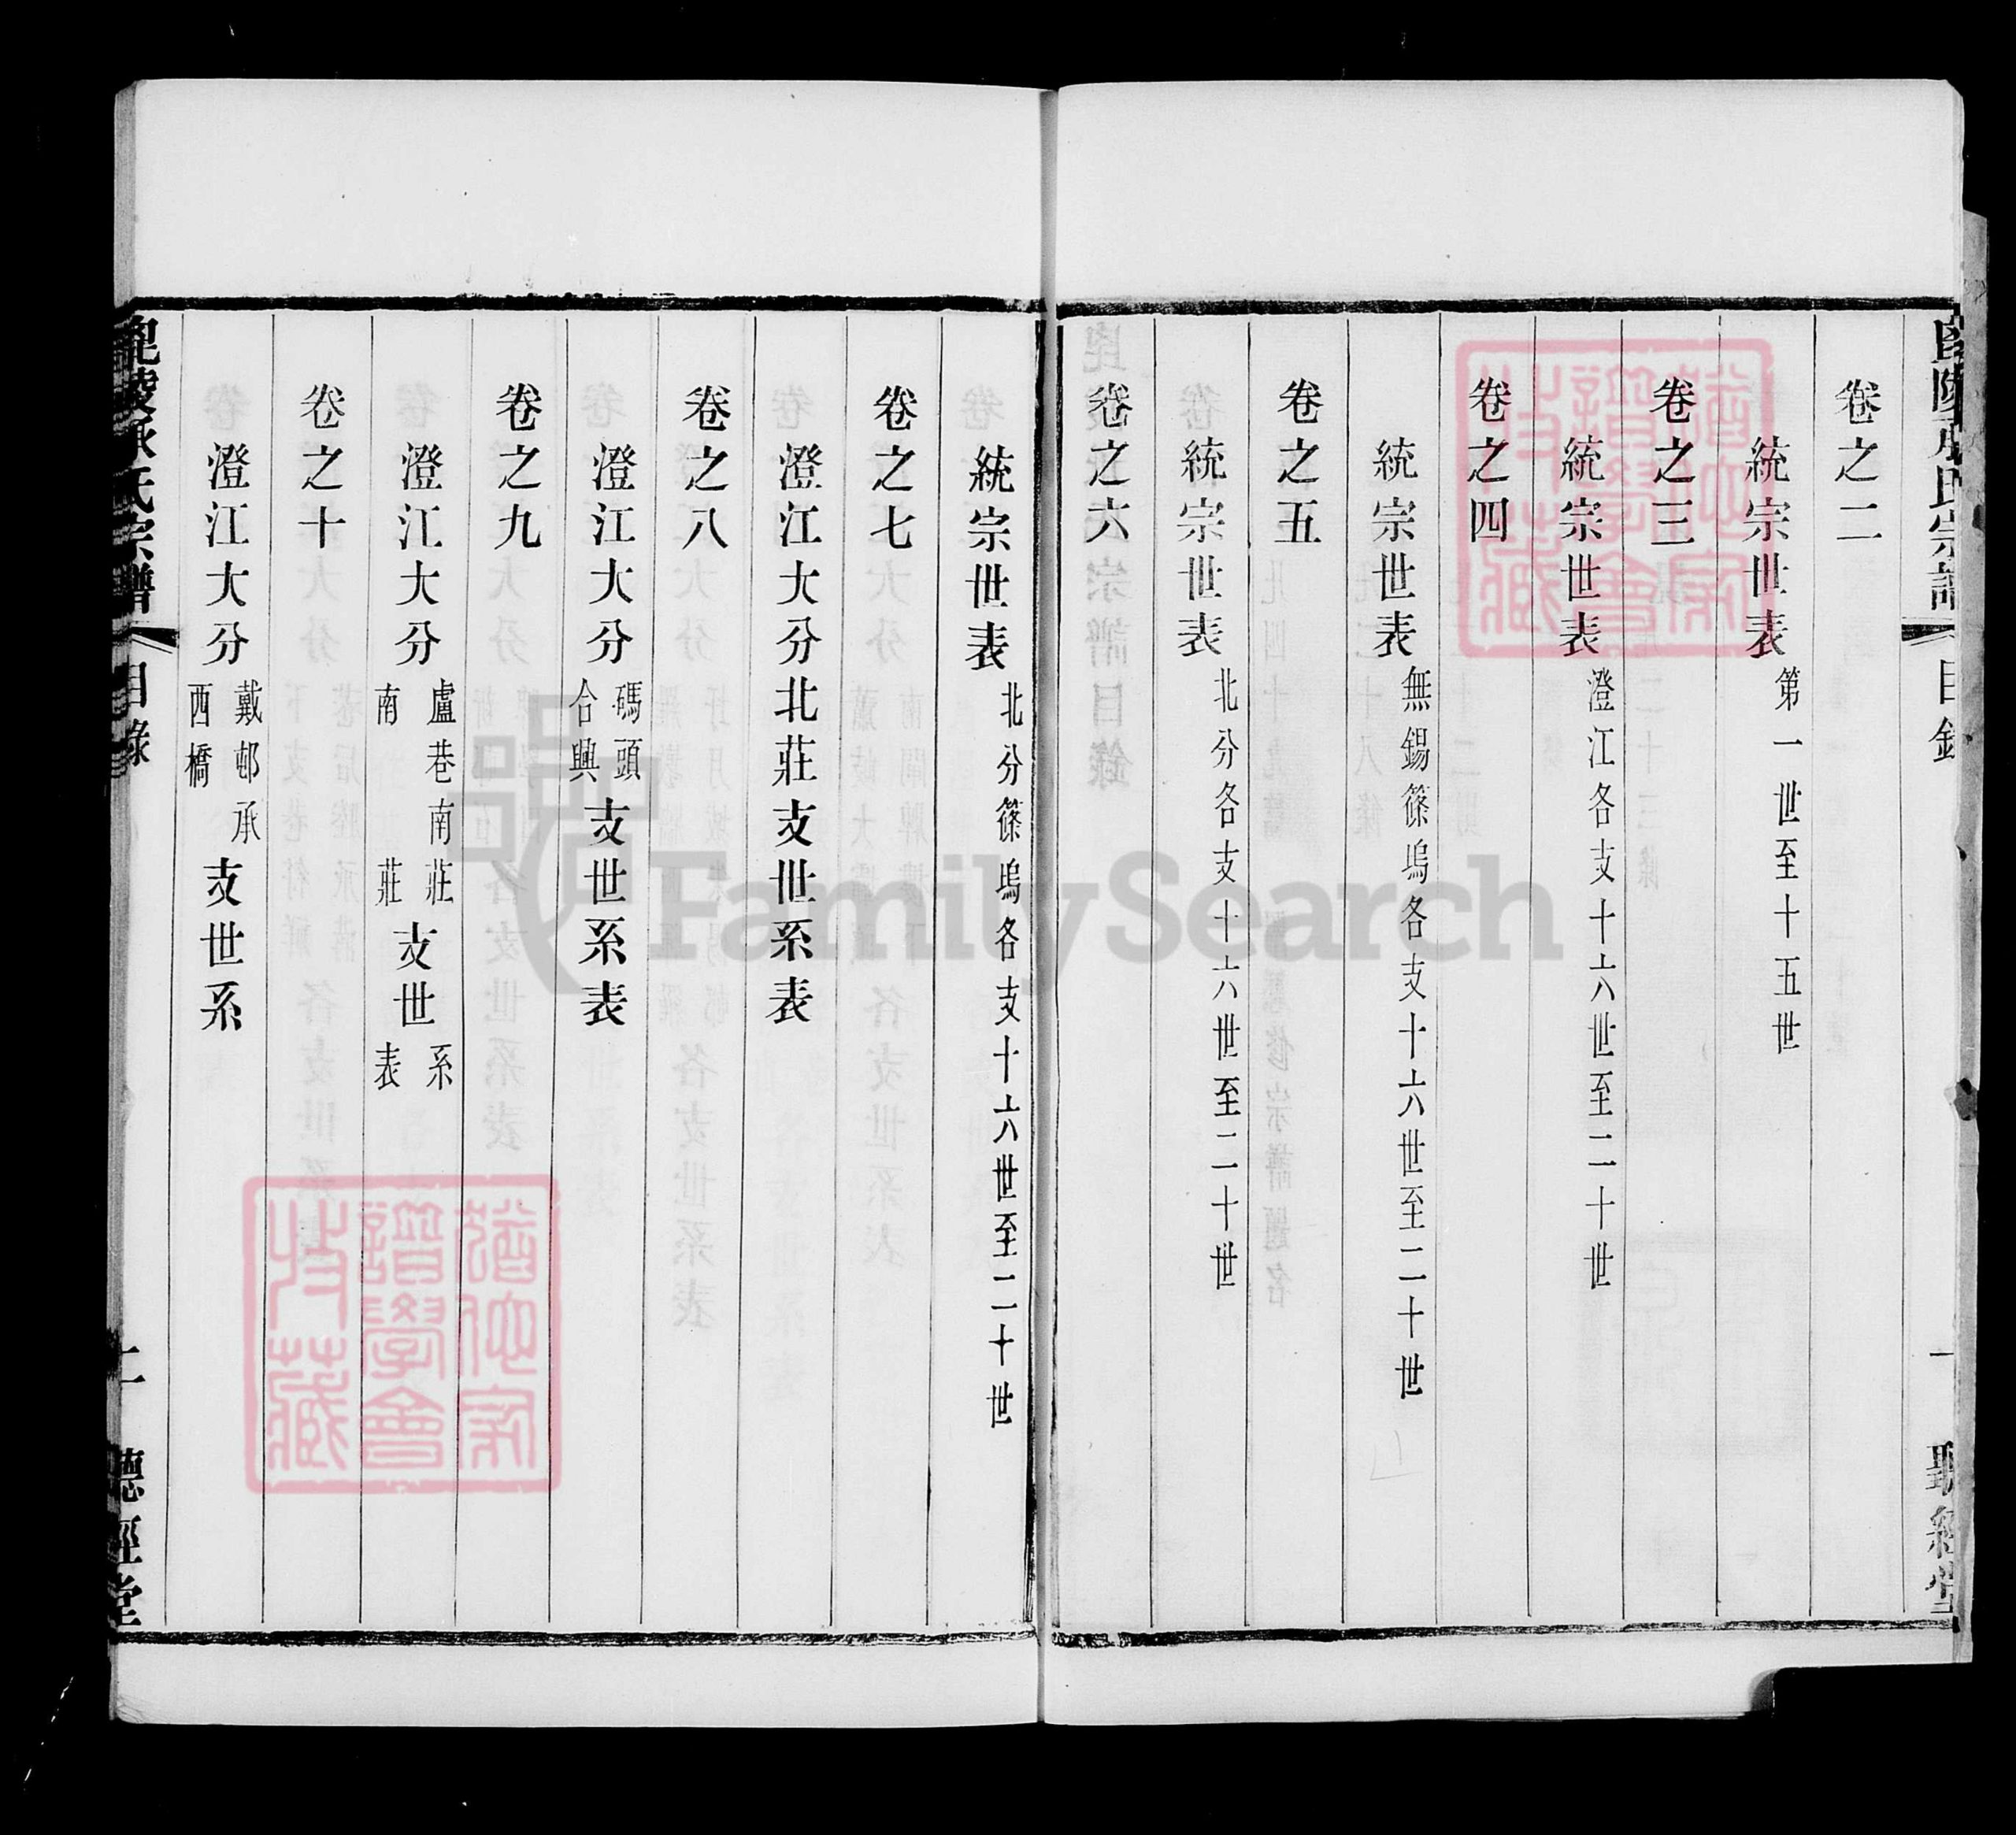 毘陵承氏宗譜 目錄 一 聽經堂
卷之二
統宗世表 第一世至十五世
卷之三
統宗世表 澄江各支十六世至二十世
卷之四
統宗世表 無錫篠塢各支十六世至二十世
卷之五
統宗世表 北分各支十六世至二十世
卷之六
統宗世表 北分篠塢各支十六世至二十世
卷之七
澄江大分北莊支世系表
卷之八
澄江大分 碼頭 合興 支世系表
卷之九
澄江大分 盧巷南莊 南莊 支世 系表
卷之十
澄江大分 戴邨承 西橋 支世系
毘陵承氏宗譜 目錄 二 聽經堂
譜學會
特藏
譜學會
特藏
FamilySearch